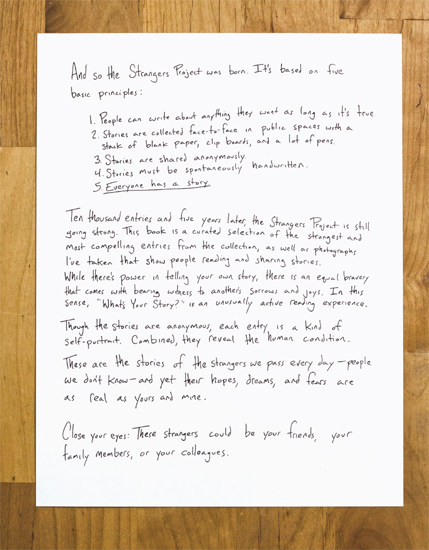 And so the Strangers Project was born. It's based on five
basic principles:
1. People can write about anything they want as long as it's true
2. Stories are collected face-to-face in public spaces with a
stack of blank paper, clip boards, and a lot of pens.
3. Stories are shared anonymously.
4. Stories must be spontaneously handwritten.
5. Everyone has a story.
Ten thousand entries and five years later, the Strangers Project is still
going strong. This book is a curated selection of the strongest and
most compelling entries from the collection, as well as photographs
I've taken that show people reading and sharing stories.
While there's power in telling your own story, there is an equal bravery
that comes with bearing witness to another's sorrows and joys. In this
sense, "What's Your Story?" is an unusually active reading experience.
Though the stories are anonymous, each entry is a kind of
self-portrait. Combined, they reveal the human condition.
These are the stories of the strangers we pass every day—people
we don't know—and yet their hopes, dreams, and fears are
as real as yours and mine.
Close your eyes: These strangers could be your friends, your
family members, or your colleagues.